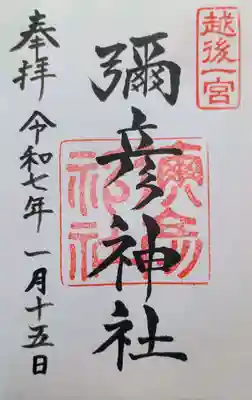 越後一宮
彌彦神社
奉拝
令和七年一月十五日